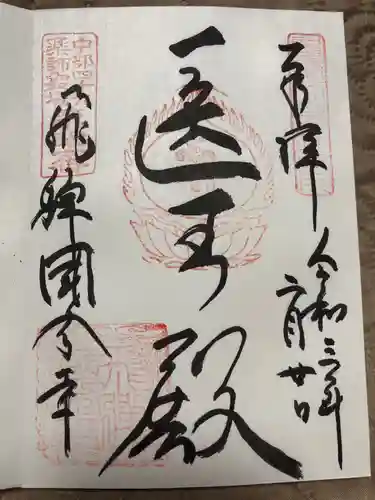 奉拝
令和三年
二月廿日
医王殿
飛騨国分寺
中部四十九
薬師霊場